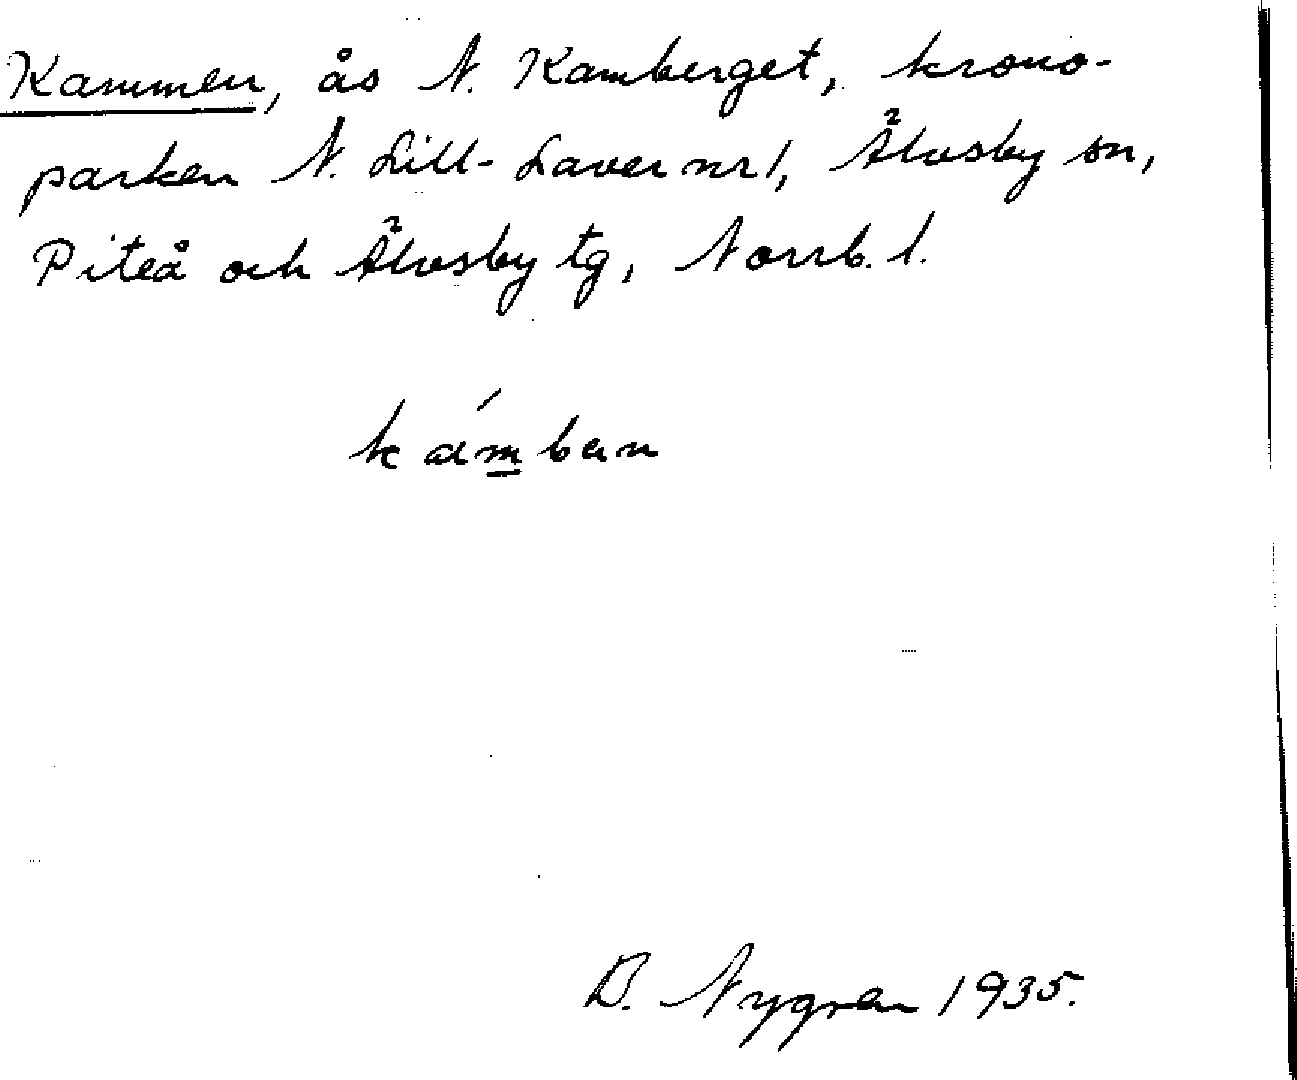 Kammen, ås N. Kamberget, krono-
parken N. Lill-Laver nr 1, Älvsby sn,
Piteå och Älvsby tg, Norrb. l.
kámban
B. Nygren 1935.